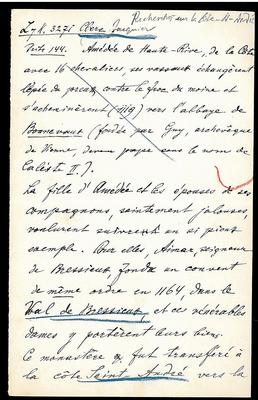 Recherches sur la Côte-St-André
Lyk. 3275 Clerc Jacquier
Amédée de Haute-Rive, de la Côte
avec 16 chevaliers, ses vassaux échangèrent
l'épée du preux contre le froc du moine et
s'acheminèrent (1119) vers l'abbaye de
Bonnevaux (fondée par Guy, archevêque
de Vienne, devenu pape sous le nom de
Calixte II.)
La fille d'Amédée et les épouses de ses
compagnons, saintement jalouses,
voulurent suivre un si pieux
exemple. Pour elles, Aimar, seigneur
de Bressieux, fonda un couvent
de même ordre en 1164, dans le
Val de Bressieux et ces vénérables
dames y portèrent leurs biens.
Ce monastère fut transféré à
la côte Saint André vers la